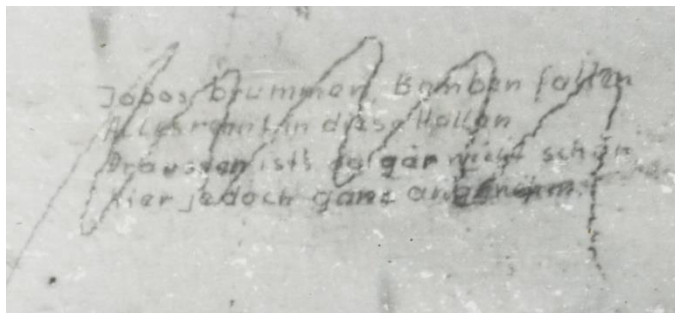 Jabos brummen Bomben fallen
Alles rennt in diese Hallen
Draussen ists da gar nicht schön
hier jedoch ganz angenehm.